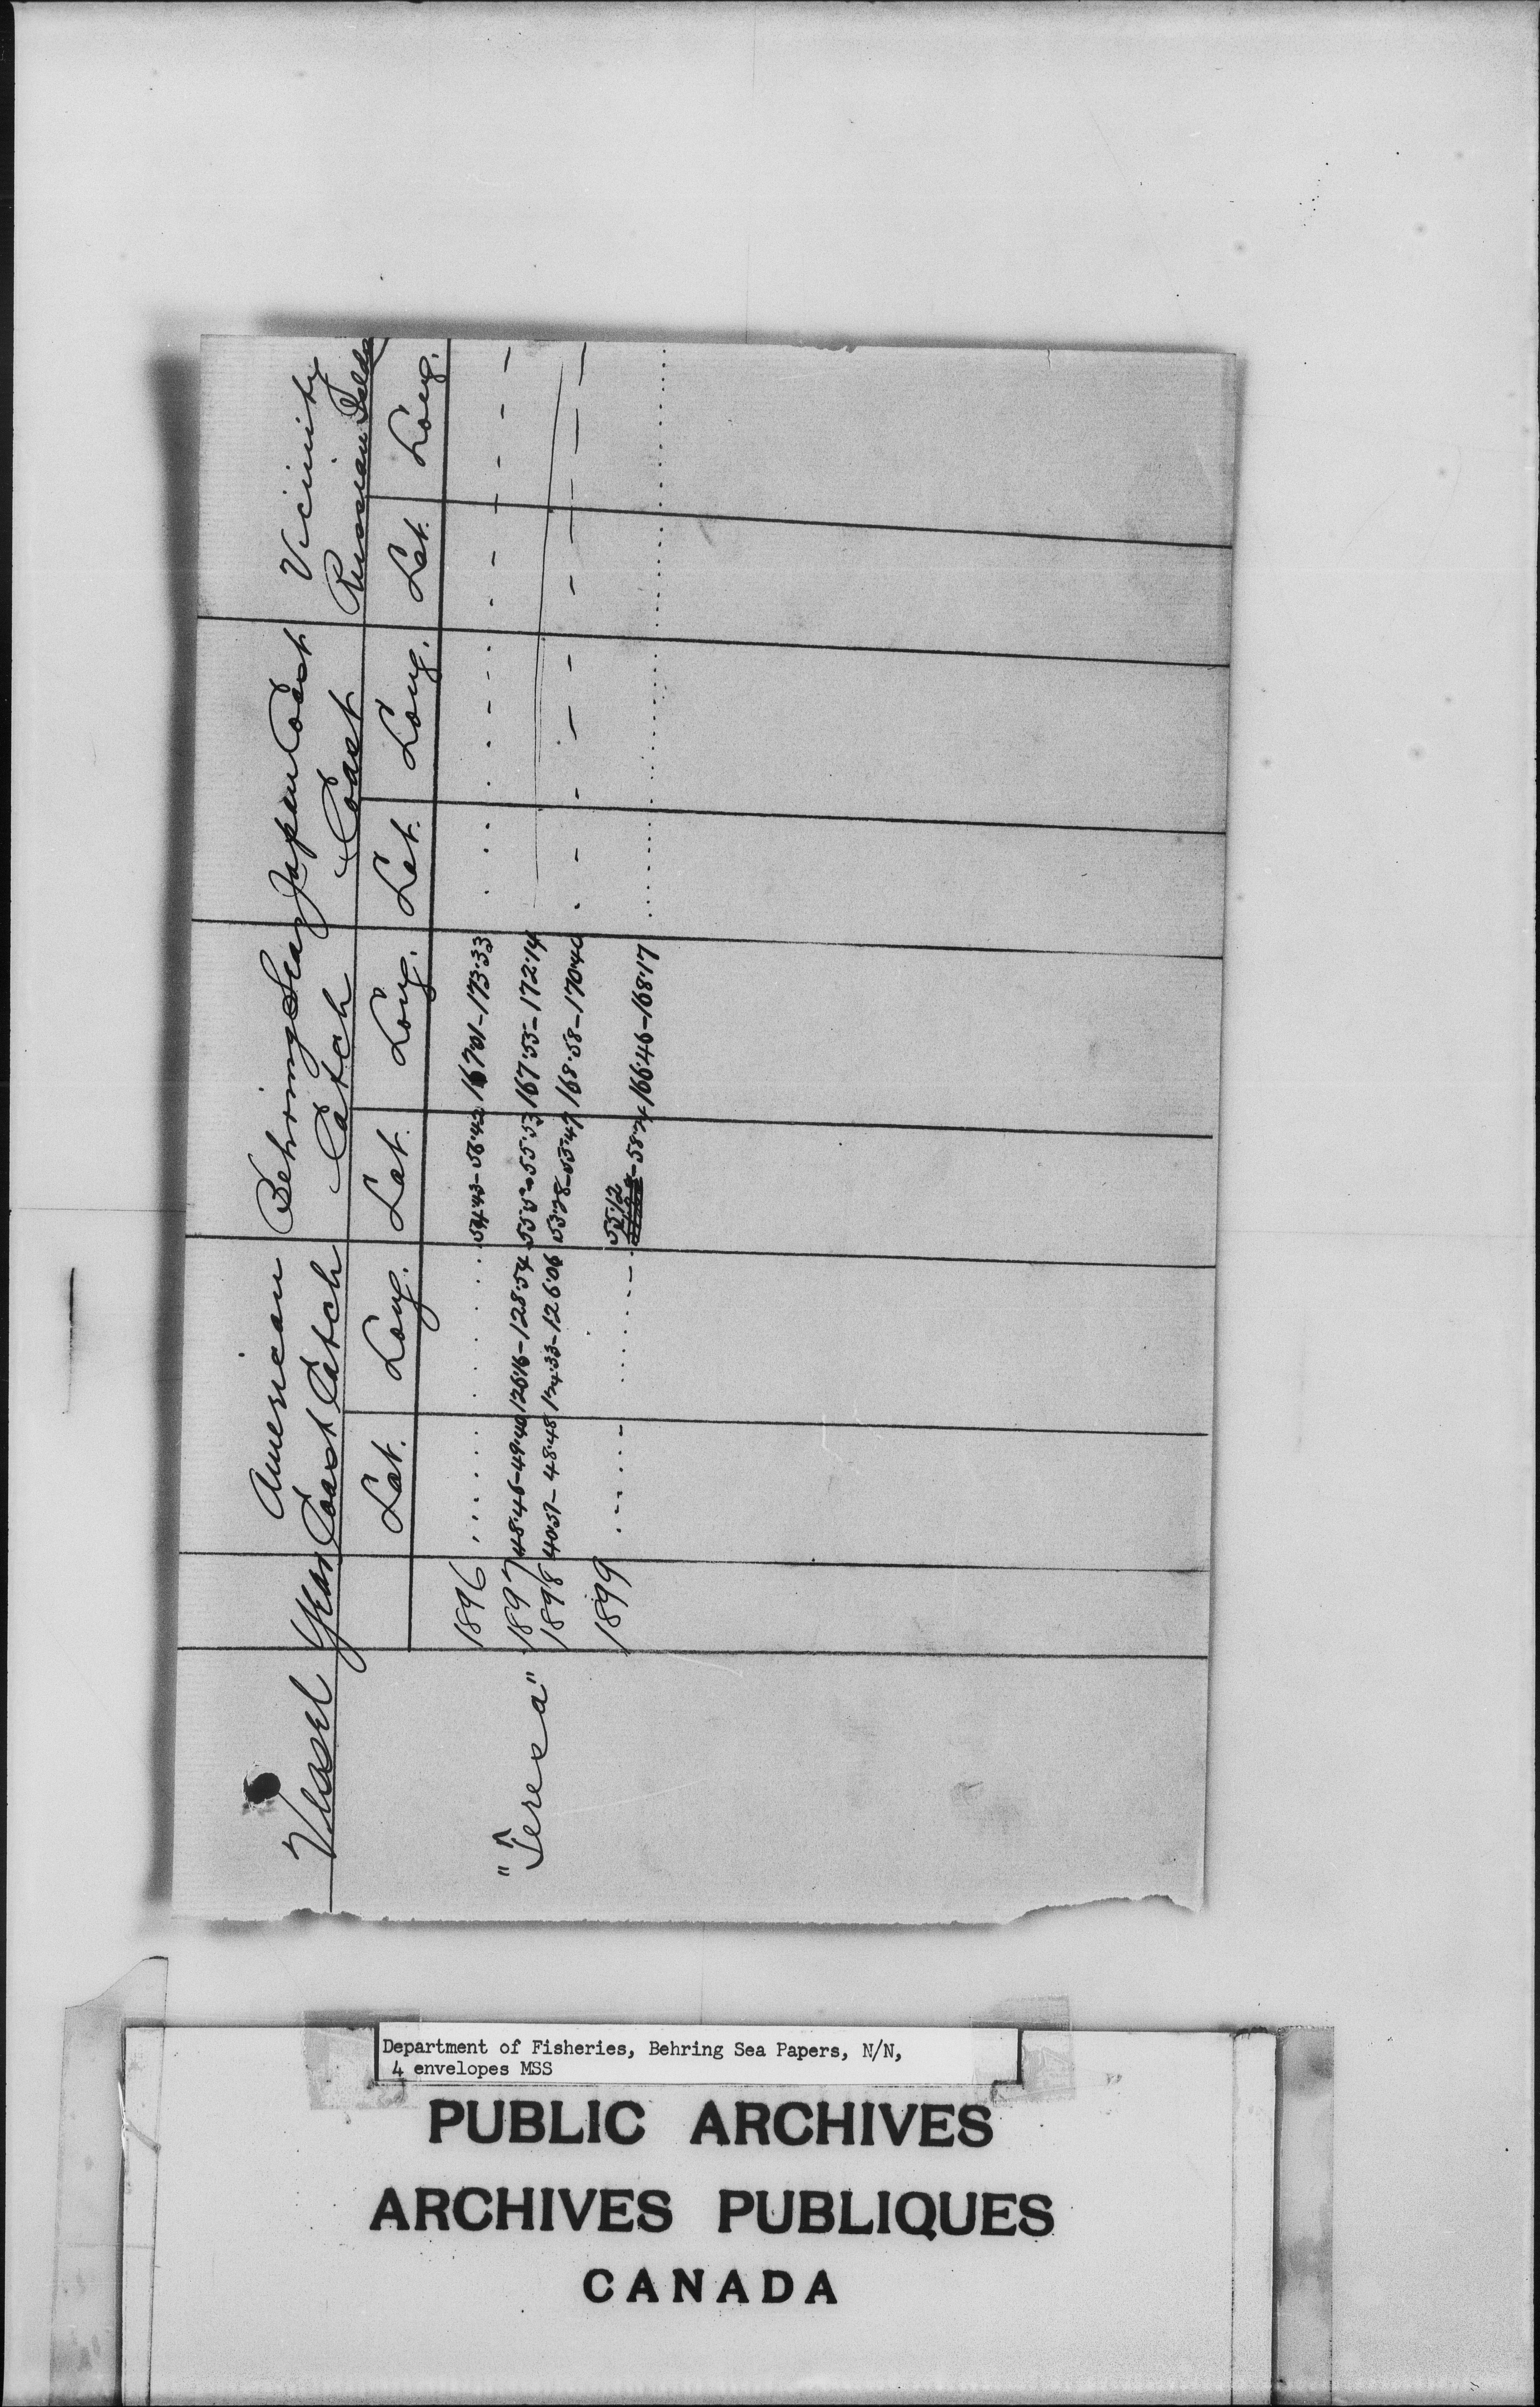 Vessel Year American Behring Sea Japan Coast Vicinity
Coast Catch Catch Coast Russian Islds
Lat. Long. Lat. Long. Lat. Long. Lat. Long.
1896 54.43-56.42 167.01-173.33
"Teresa" 1897 48.46-49.40 126.16-128.54 55.5-55.53 167.55-172.14
1898 40.57-48.48 124.33-126.06 53.28-55.47 168.58-170.40
55.12
1899 -58.24 166.46-168.17
Department of Fisheries, Behring Sea Papers, N/N,
4 envelopes MSS
PUBLIC ARCHIVES
ARCHIVES PUBLIQUES
CANADA